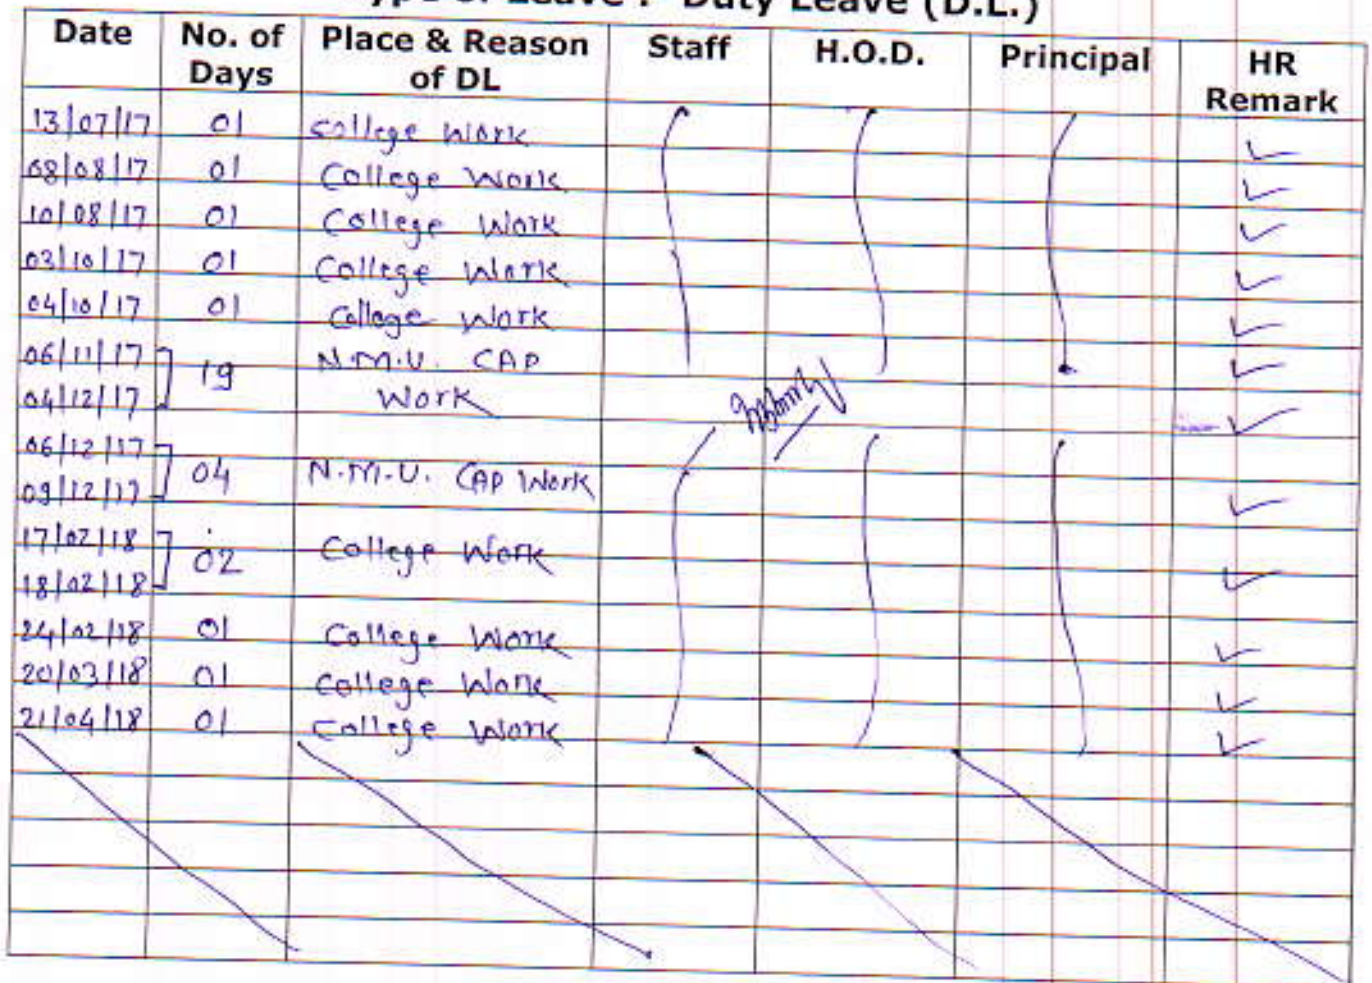 Type of Leave : Duty Leave (D.L.)
Date No. of Days Place & Reason of DL Staff H.O.D. Principal HR Remark
13/07/17 01 College Work ✓
08/08/17 01 College Work ✓
10/08/17 01 College Work ✓
03/10/17 01 College Work ✓
04/10/17 01 College Work ✓
06/11/17 19 N.M.U. CAP ✓
04/12/17 Work ✓
06/12/17 04 N.M.U. CAP Work
09/12/17 ✓
17/02/18 02 College Work
18/02/18 ✓
24/02/18 01 College Work ✓
20/03/18 01 College Work ✓
21/04/18 01 College Work ✓